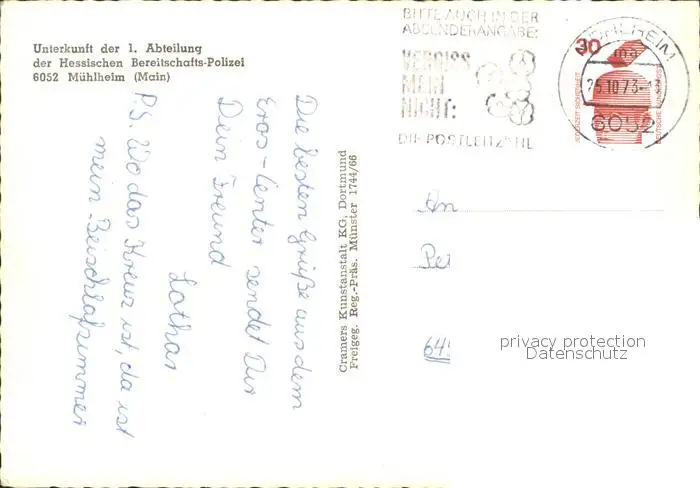 Unterkunft der 1. Abteilung
der Hessischen Bereitschafts-Polizei
6052 Mühlheim (Main)
BITTE AUCH IN DER
ABSENDERANGABE:
VERGISS
MEIN
NICHT:
DIE POSTLEITZAHL
MÜHLHEIM
25.10.73
6052
30
JEDERZEIT SICHERHEIT
DEUTSCHE BUNDESPOST
Die besten Grüße aus dem
Eros-Center sendet Dir
Dein Freund
Lothar
P.S. Wo das Kreuz ist, da ist
mein Beischlafzimmer
Cramers Kunstanstalt KG, Dortmund
Freigeg. Reg.-Präs. Münster 1744/66
An
Pet
64
privacy protection
Datenschutz